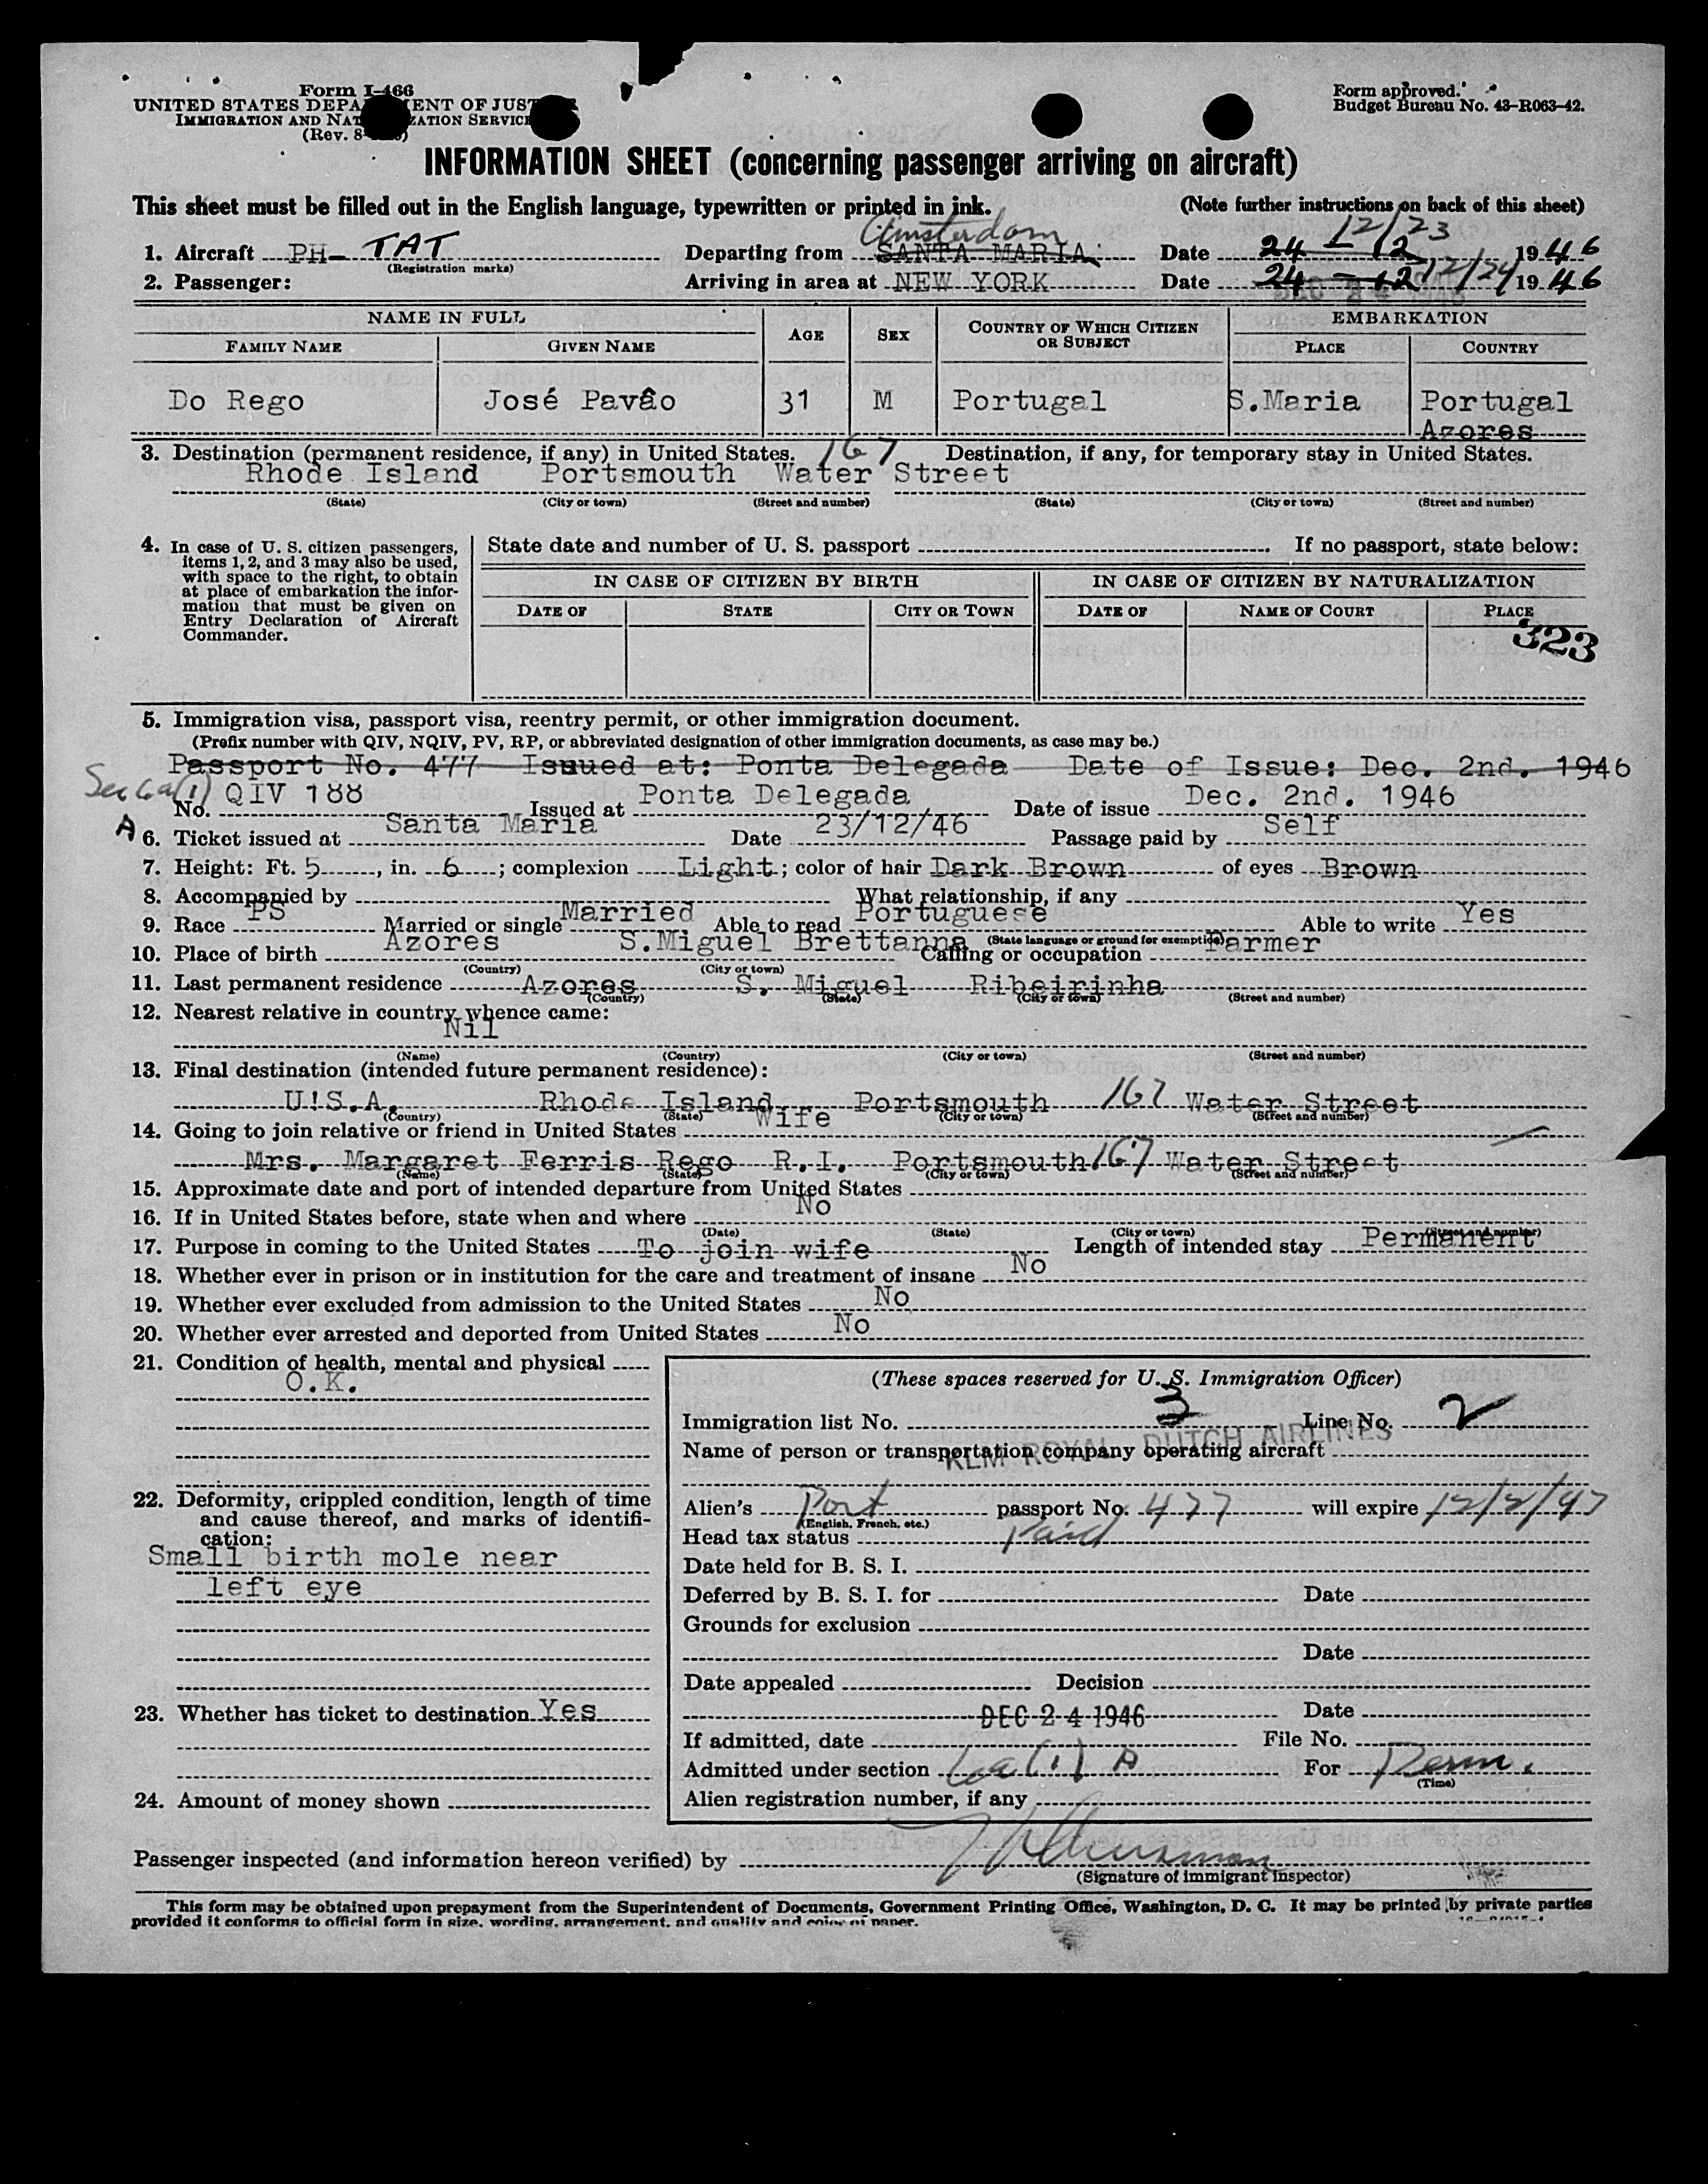 Form I-466
UNITED STATES DEPARTMENT OF JUSTICE
IMMIGRATION AND NATURALIZATION SERVICE
(Rev. 8-
Form approved.
Budget Bureau No. 43-R063-42.
INFORMATION SHEET (concerning passenger arriving on aircraft)
This sheet must be filled out in the English language, typewritten or printed in ink. (Note further instructions on back of this sheet)
Amsterdam 12/23
1. Aircraft PH-TAT Departing from SANTA MARIA Date 24 - 12 1946
(Registration marks)
2. Passenger: Arriving in area at NEW YORK Date 24 - 12 12/24 1946
NAME IN FULL AGE SEX COUNTRY OF WHICH CITIZEN OR SUBJECT EMBARKATION
FAMILY NAME GIVEN NAME PLACE COUNTRY
Do Rego José Pavâo 31 M Portugal S.Maria Portugal
Azores
3. Destination (permanent residence, if any) in United States. 167 Destination, if any, for temporary stay in United States.
Rhode Island Portsmouth Water Street
(State) (City or town) (Street and number) (State) (City or town) (Street and number)
4. In case of U. S. citizen passengers, items 1, 2, and 3 may also be used, with space to the right, to obtain at place of embarkation the information that must be given on Entry Declaration of Aircraft Commander.
State date and number of U. S. passport If no passport, state below:
IN CASE OF CITIZEN BY BIRTH IN CASE OF CITIZEN BY NATURALIZATION
DATE OF STATE CITY OR TOWN DATE OF NAME OF COURT PLACE
323
5. Immigration visa, passport visa, reentry permit, or other immigration document.
(Prefix number with QIV, NQIV, PV, RP, or abbreviated designation of other immigration documents, as case may be.)
Passport No. 477 Isuued at: Ponta Delegada Date of Issue: Dec. 2nd. 1946
Sec 6a(1) A
No. QIV 188 Issued at Ponta Delegada Date of issue Dec. 2nd. 1946
6. Ticket issued at Santa Maria Date 23/12/46 Passage paid by Self
7. Height: Ft. 5, in. 6; complexion Light; color of hair Dark Brown of eyes Brown
8. Accompanied by What relationship, if any
9. Race PS Married or single Married Able to read Portuguese Able to write Yes
(State language or ground for exemption)
10. Place of birth Azores S.Miguel Brettanna Calling or occupation Farmer
(Country) (City or town)
11. Last permanent residence Azores S. Miguel Ribeirinha
(Country) (State) (City or town) (Street and number)
12. Nearest relative in country whence came:
Nil
(Name) (Country) (City or town) (Street and number)
13. Final destination (intended future permanent residence):
U!S.A. Rhode Island Portsmouth 167 Water Street
(Country) (State) (City or town) (Street and number)
14. Going to join relative or friend in United States Wife
Mrs. Margaret Ferris Rego R.I. Portsmouth 167 Water Street
(Name) (State) (City or town) (Street and number)
15. Approximate date and port of intended departure from United States
16. If in United States before, state when and where No
(Date) (State) (City or town) (Street and number)
17. Purpose in coming to the United States To join wife Length of intended stay Permanent
18. Whether ever in prison or in institution for the care and treatment of insane No
19. Whether ever excluded from admission to the United States No
20. Whether ever arrested and deported from United States No
21. Condition of health, mental and physical
O.K.
22. Deformity, crippled condition, length of time and cause thereof, and marks of identification:
Small birth mole near
left eye
23. Whether has ticket to destination Yes
24. Amount of money shown
(These spaces reserved for U. S. Immigration Officer)
Immigration list No. 3 Line No. 2
Name of person or transportation company operating aircraft
KLM ROYAL DUTCH AIRLINES
Alien's Port passport No. 477 will expire 12/2/47
(English, French, etc.)
Head tax status Paid
Date held for B. S. I.
Deferred by B. S. I. for Date
Grounds for exclusion
Date
Date appealed Decision
DEC 24 1946 Date
If admitted, date File No.
Admitted under section 6a(1) A For Perm.
(Time)
Alien registration number, if any
Passenger inspected (and information hereon verified) by
(Signature of immigrant inspector)
This form may be obtained upon prepayment from the Superintendent of Documents, Government Printing Office, Washington, D. C. It may be printed by private parties
provided it conforms to official form in size, wording, arrangement, and quality and color of paper.